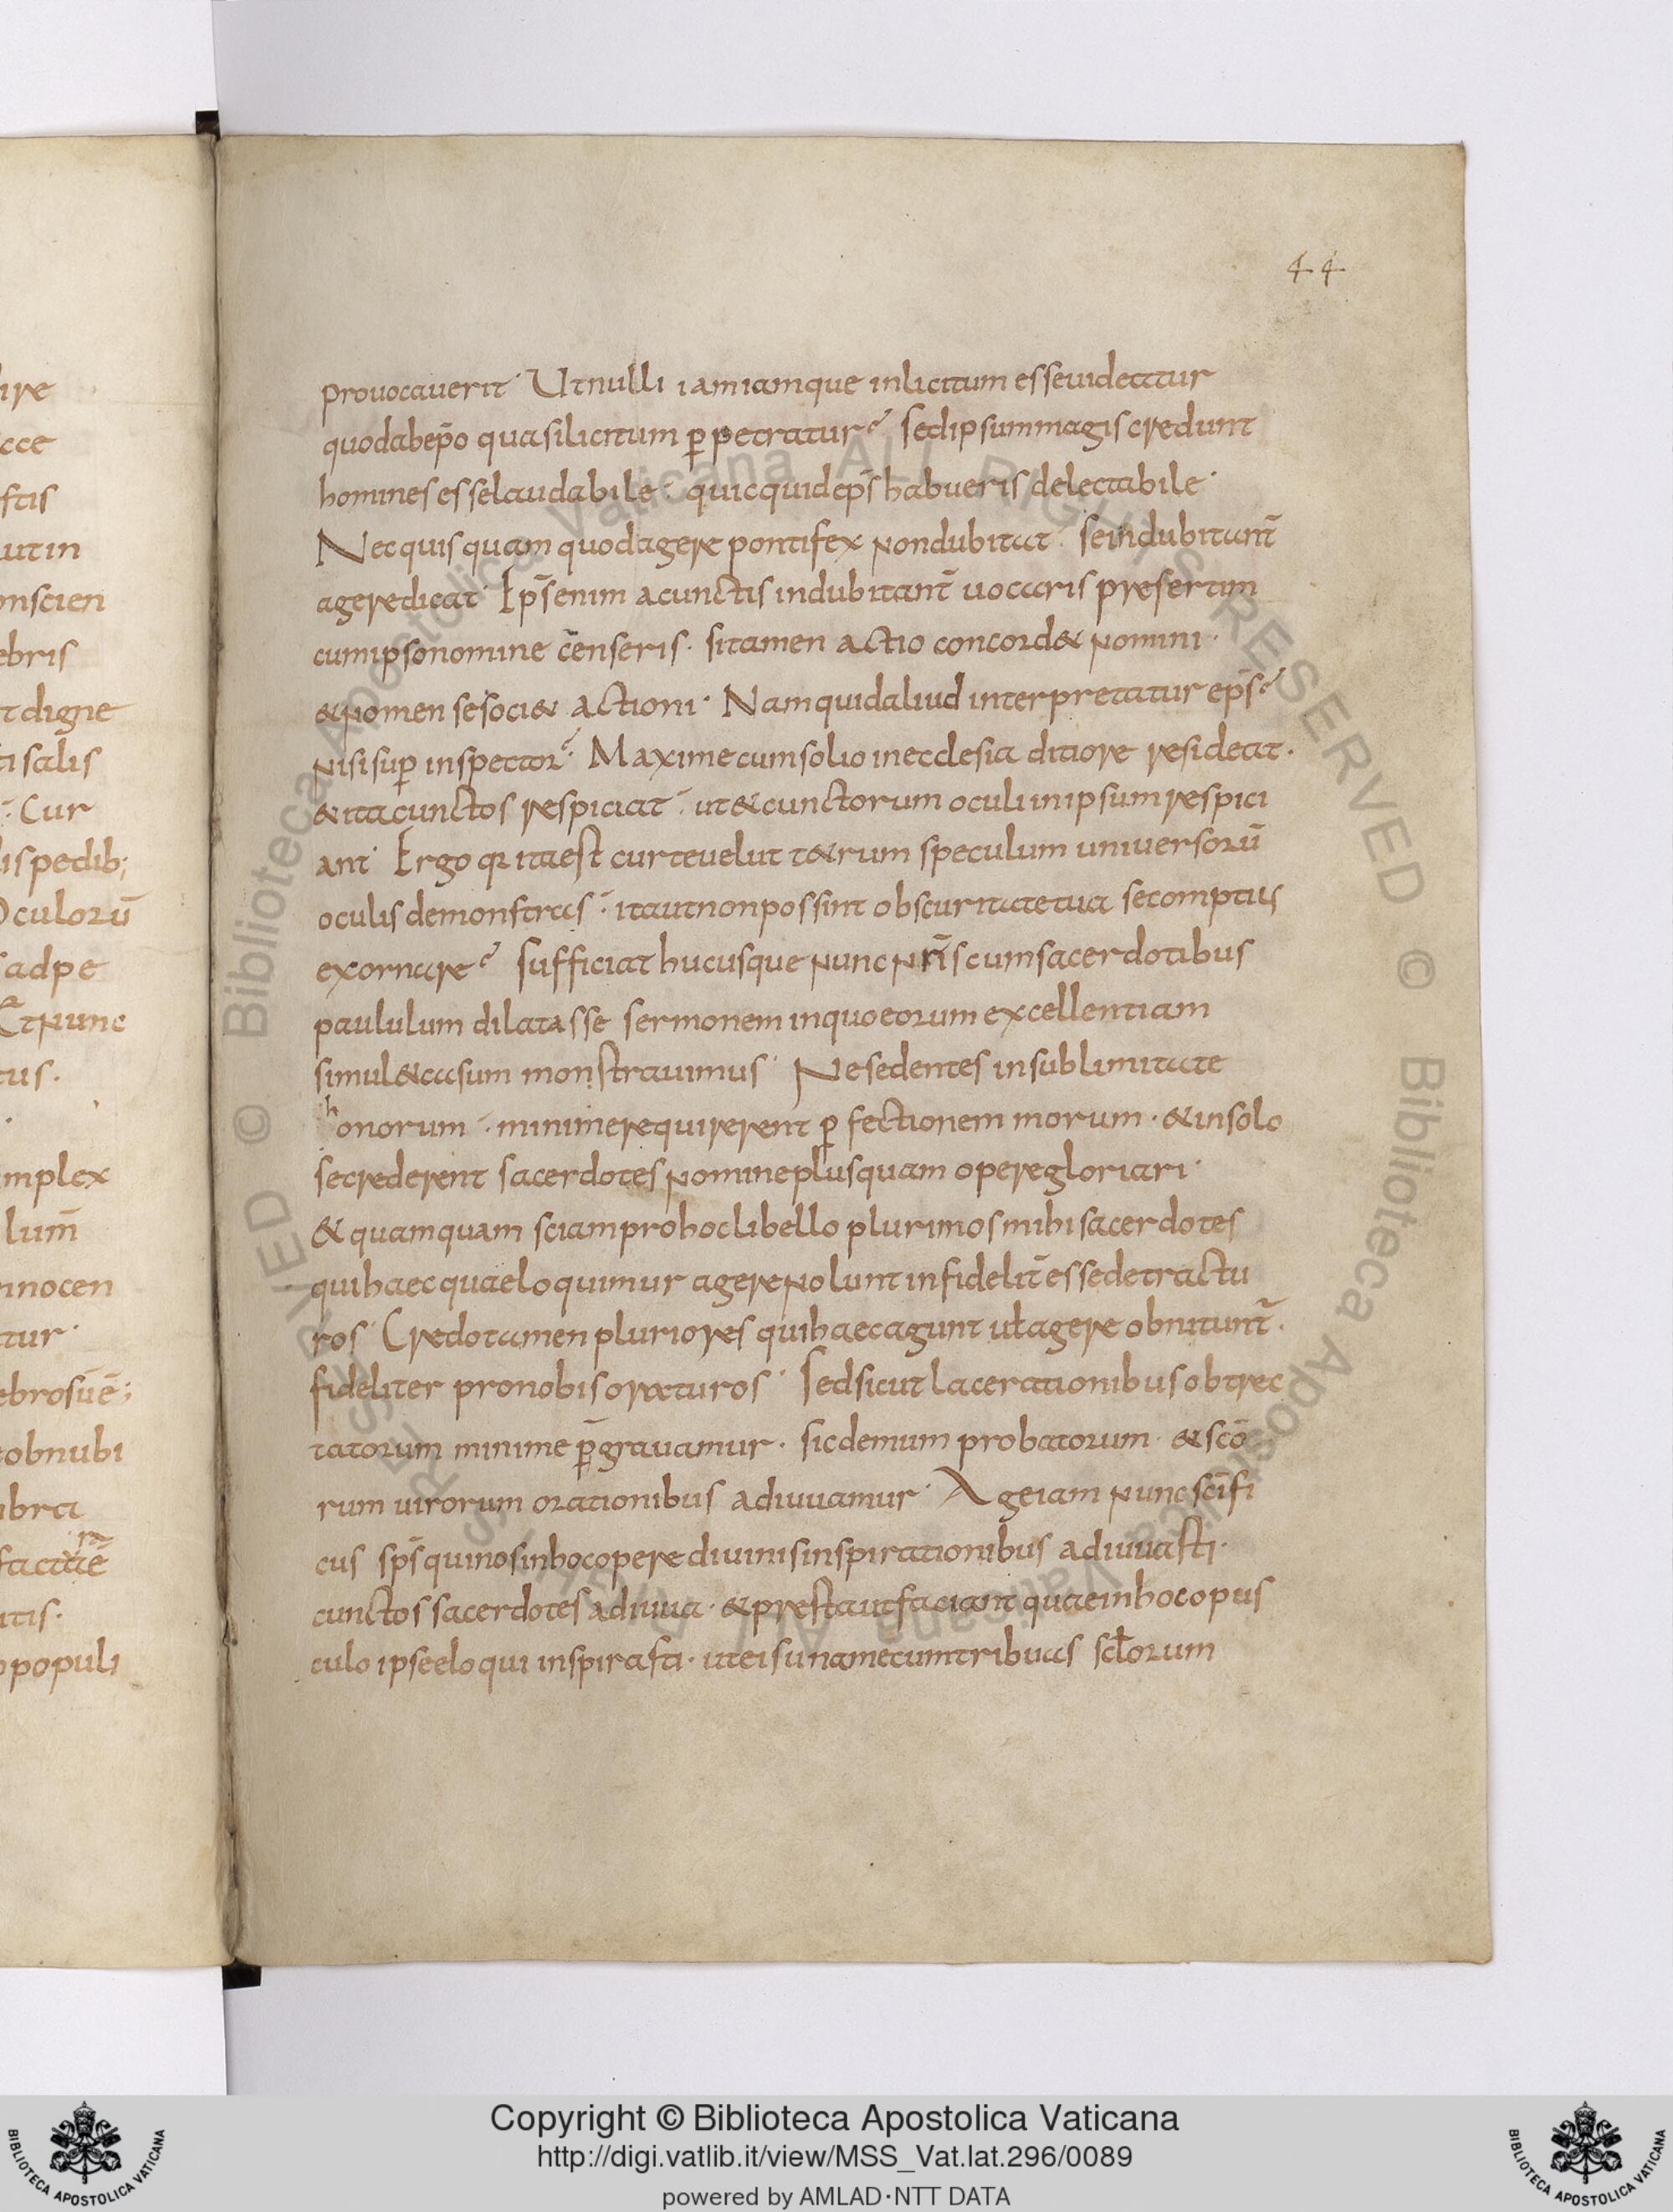 ire
cce
ftis
ut in
onscien
ebris
t digne
ti salis
: Cur
lis pedib;
Oculorū
s ad pe
Et nunc
tus.
mplex
lum̄
nnocen
tur
ebrosuē;
obnubi
ibra
itis.
populi
44
prouocauerit· Ut nulli iamiamque inlicitum esse uideatur
quod ab ep̄o quasi licitum p̱petratur? sed ipsum magis credunt
homines esse laudabile: quicquid ep̄s habueris delectabile·
Nec quisquam quod agere pontifex non dubitat· se indubitant̄
agere dicat· Ep̄s enim a cunctis indubitant̄ uocaris presertim
cum ipso nomine c̄enseris· si tamen actio concord& nomini·
& nomen se soci& actioni· Nam quid aliud interpretatur ep̄s?
nisi sup̱ inspector? Maxime cum solio in ecclesia ditiore resideat·
& ita cunctos respiciat· ut & cunctorum oculi in ipsum respici
ant· Ergo qr ita est cur te uelut t&rum speculum uniuersorū
oculis demonstras· ita ut non possint obscuritate tua se comptius
exornare? sufficiat hucusque nunc nr̄is cum sacerdotibus
paululum dilatasse sermonem in quo eorum excellentiam
simul & casum monstrauimus· Ne sedentes in sublimitate
honorum· minime requirerent p̱fectionem morum· & in solo
se crederent sacerdotes nomine plusquam opere gloriari·
& quamquam sciam pro hoc libello plurimos mihi sacerdotes
qui haec quae loquimur agere nolunt infidelit̄ esse detractu
ros· Credo tamen pluriores qui haec agunt uƚ agere obnitunt̄·
fideliter pro nobis oraturos· Sed sicut lacerationibus obtrec
tatorum minime p̱grauamur· sic demum probatorum· & scō
rum uirorum orationibus adiuuamur· Age iam nunc scīfi
cus sp̄s qui nos in hoc opere diuinis inspirationibus adiuuasti·
cunctos sacerdotes adiuua· & presta ut faciant quae in hoc opus
culo ipse eloqui inspirasti· ut ei su na mecum tribuas scƚorum
© Biblioteca Apostolica Vaticana ALL RIGHTS RESERVED © Biblioteca Apostolica Vaticana ALL RIGHTS RESERVED
BIBLIOTECA APOSTOLICA VATICANA
Copyright © Biblioteca Apostolica Vaticana
http://digi.vatlib.it/view/MSS_Vat.lat.296/0089
powered by AMLAD·NTT DATA
BIBLIOTECA APOSTOLICA VATICANA